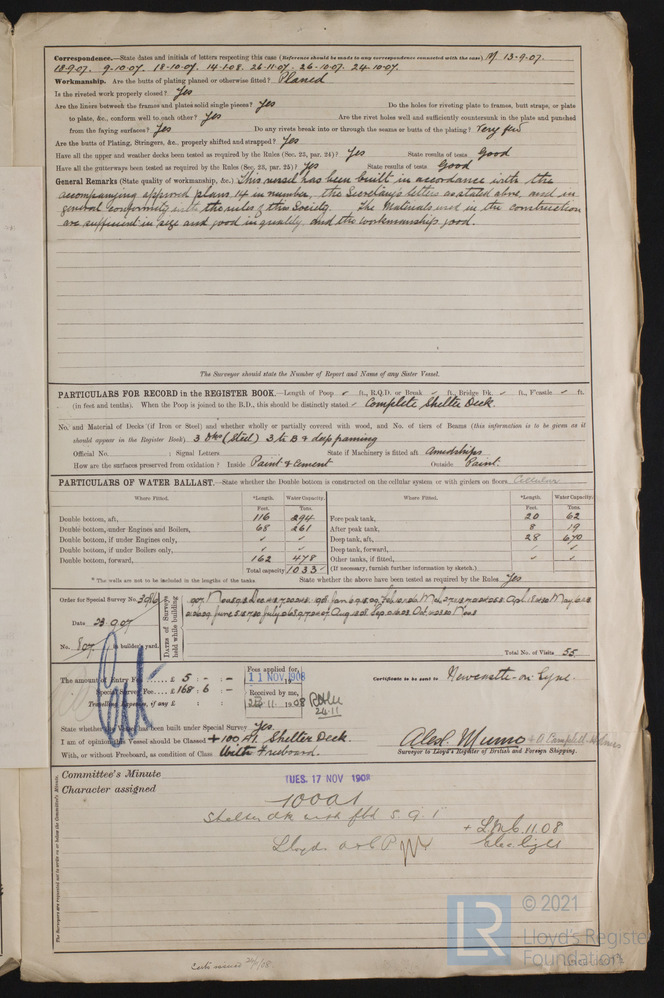 Correspondence.—State dates and initials of letters respecting this case (Reference should be made to any correspondence connected with the case) M 13-9-07.
18-9-07. 9-10-07. 18-10-07. 14-1-08. 26-11-07. 26-10-07. 24-10-07.
Workmanship. Are the butts of plating planed or otherwise fitted? Planed
Is the riveted work properly closed? Yes
Are the liners between the frames and plates solid single pieces? Yes Do the holes for riveting plate to frames, butt straps, or plate
to plate, &c., conform well to each other? Yes Are the rivet holes well and sufficiently countersunk in the plate and punched
from the faying surfaces? Yes Do any rivets break into or through the seams or butts of the plating? Very few
Are the butts of Plating, Stringers, &c., properly shifted and strapped? Yes
Have all the upper and weather decks been tested as required by the Rules (Sec. 23, par. 24)? Yes State results of tests Good
Have all the gutterways been tested as required by the Rules (Sec. 23, par. 25)? Yes State results of tests Good
General Remarks (State quality of workmanship, &c.) This vessel has been built in accordance with the
accompanying approved plans 14 in number, the Secretary's letters as stated above, and in
general conformity with the rules of this Society. The Materials used in the construction
are sufficient in size and good in quality, and the workmanship good.
The Surveyor should state the Number of Report and Name of any Sister Vessel.
PARTICULARS FOR RECORD in the REGISTER BOOK.—Length of Poop ✓ ft., R.Q.D. or Break ✓ ft., Bridge Dk. ✓ ft., F'castle ✓ ft.
(in feet and tenths). When the Poop is joined to the B.D., this should be distinctly stated - Complete Shelter Deck
No. and Material of Decks (if Iron or Steel) and whether wholly or partially covered with wood, and No. of tiers of Beams (this information is to be given as it
should appear in the Register Book) 3 Dks (Steel) 3 tr B & deep framing
Official No. ; Signal Letters State if Machinery is fitted aft Amidships
How are the surfaces preserved from oxidation? Inside Paint & Cement Outside Paint.
PARTICULARS OF WATER BALLAST.—State whether the Double bottom is constructed on the cellular system or with girders on floors Cellular
Where Fitted. *Length. Water Capacity. Where Fitted. *Length. Water Capacity.
Feet. Tons. Feet. Tons.
Double bottom, aft, 116 294 Fore peak tank, 20 62
Double bottom, under Engines and Boilers, 68 261 After peak tank, 8 19
Double bottom, if under Engines only, ✓ ✓ Deep tank, aft, 28 670
Double bottom, if under Boilers only, ✓ ✓ Deep tank, forward, ✓ ✓
Double bottom, forward, 162 478 Other tanks, if fitted, ✓ ✓
Total capacity 1033 (If necessary, furnish further information by sketch.)
* The walls are not to be included in the lengths of the tanks State whether the above have been tested as required by the Rules Yes
Order for Special Survey No. 3986
Date 23.9.07
No. 807 in builder's yard.
DATES of Surveys held while building
Total No. of Visits 55.
The amount of Entry Fee £ 5 : - : -
Special Survey Fee £ 168 : 6 : -
Travelling Expenses, if any £ : :
Fees applied for,
11 NOV 1908
Received by me,
24.11.1908
24.11
Certificate to be sent to Newcastle-on-Tyne.
State whether the Vessel has been built under Special Survey Yes.
I am of opinion this Vessel should be Classed + 100 A1 Shelter Deck.
With, or without Freeboard, as condition of Class With Freeboard.
Alexr. Munro
Surveyor to Lloyd's Register of British and Foreign Shipping.
Committee's Minute TUES. 17 NOV 1908
Character assigned
100A1
Shelter dk with fbd S.9.1
+ L.M.C. 11.08
Elec light
Lloyds A & C P
© 2021
LR Lloyd's Register
Foundation